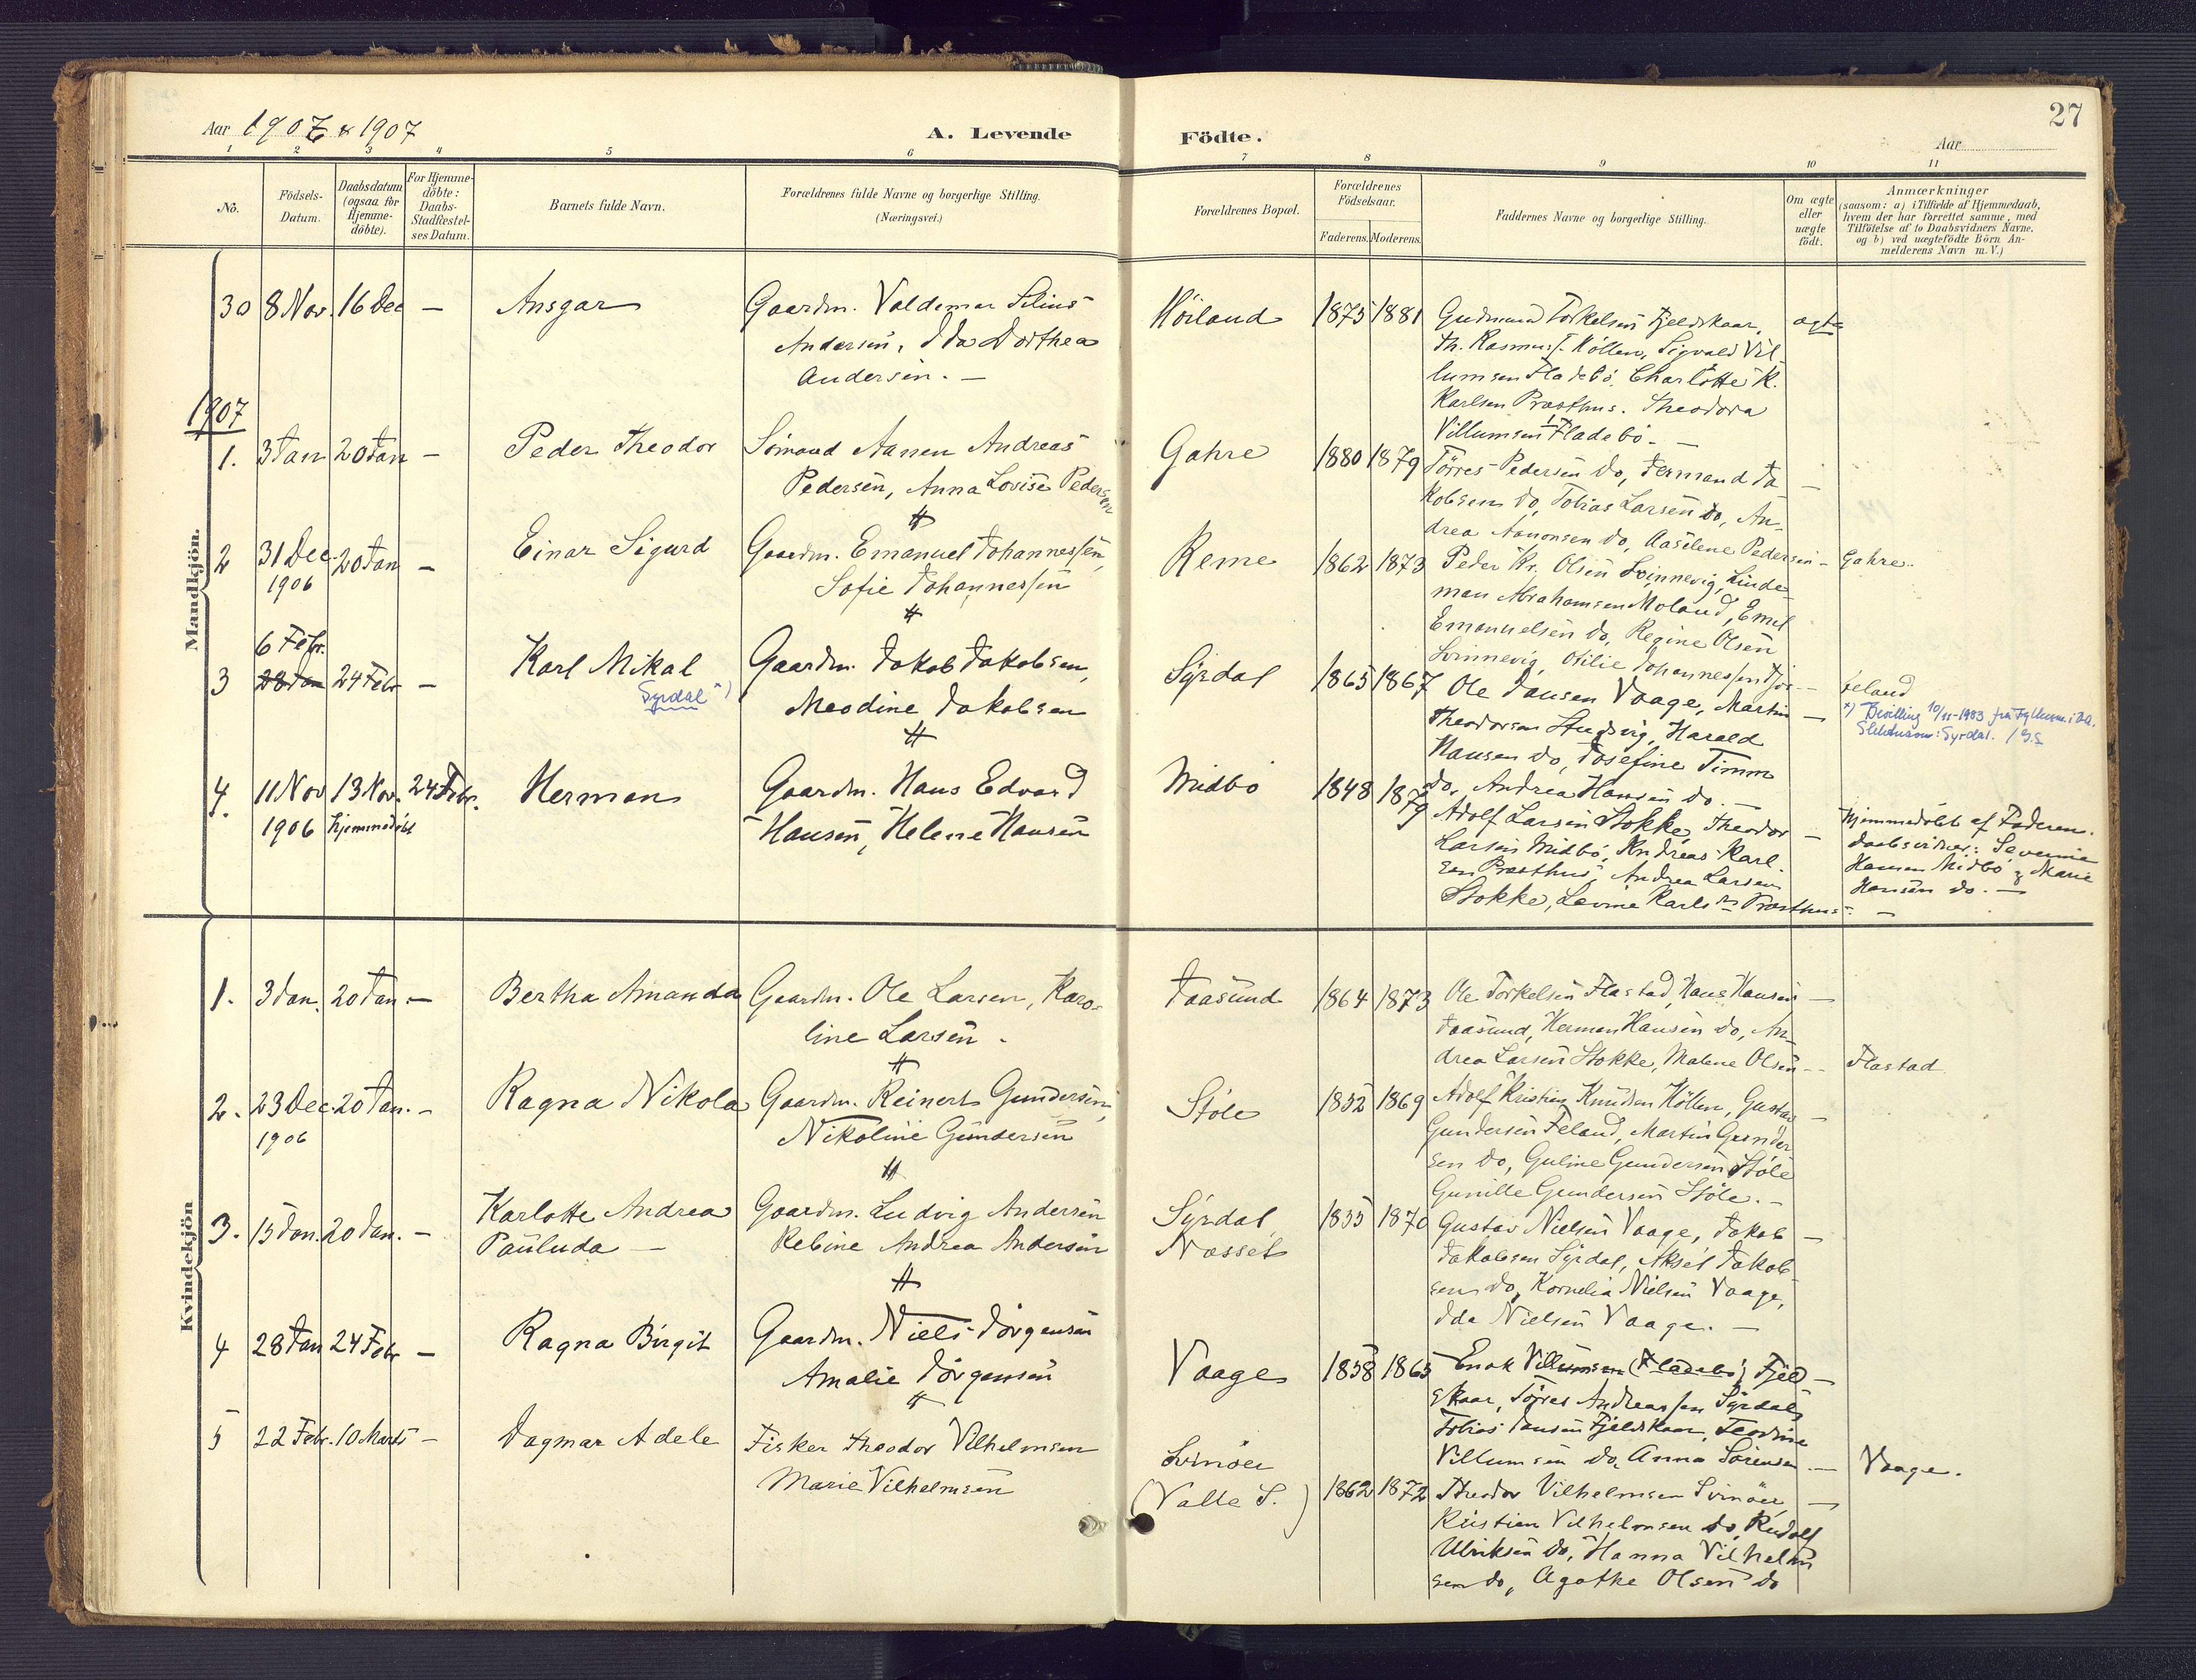 27
Aar 1906 & 1907
A. Levende Födte.
Aar
1 2 3 4 5 6 7 8 9 10 11
No.
Födsels-
Datum.
Daabsdatum
(ogsaa for
Hjemme-
döbte).
For Hjemme-
döbte:
Daabs-
Stadfæstel-
ses Datum.
Barnets fulde Navn.
Forældrenes fulde Navne og borgerlige Stilling.
(Næringsvei.)
Forældrenes Bopæl.
Forældrenes
Födselsaar.
Faderens. Moderens.
Faddernes Navne og borgerlige Stilling.
Om ægte
eller
uægte
födt.
Anmærkninger
(saasom: a) i Tilfælde af Hjemmedaab,
hvem der har forrettet samme, med
Tilföielse af to Daabsvidners Navne.
og b) ved uægtefödte Börn An-
melderens Navn m.V.)
Mandkjön.
30 8 Nov. 16 Dec — Ansgar
Gaardm. Valdemar Silius
Andersen, Ida Dorthea
Andersen. —
Höiland 1875 1881
Gudmund Torkelsen Fjeldskaar, ægte
Th. Rasmus. Köllen, Sigvald Vil-
lumsen Fladebö, Charlotte K.
Karlsen Præsthus. Theodora
Villumsen Fladebö. —
1907
1. 3 Jan 20 Jan — Peder Theodor
Sömand Aanen Andreas
Pedersen, Anna Lovise Pedersen
Gahre 1880 1879
Törres Pedersen do, Fermand Ja- —
kobsen do, Tobias Larsen do, An-
drea Aanonsen do, Aaselene Pedersen — Gahre.
2 31 Dec. 20 Jan —
1906
Einar Sigurd
Gaardm. Emanuel Johannessen,
Sofie Johannessen
Reme 1862 1873
Peder Kr. Olsen Svinnevig, Linde-
man Abrahamsen Moland, Emil
Emanuelsen do, Regine Olsen
Svinnevig, Otilie Johannessen
6 Febr.
3 28 Jan 24 Febr — Karl Mikal
Syrdal *)
Gaardm. Jakob Jakobsen,
Meodine Jakobsen
Syrdal 1865 1867
Ole Jansen Vaage, Martin —
Theodorsen Studvig, Harald
Hansen do, Josefine Timm
do, Andrea Hansen do. —
*) Bevilling 10/11-1983 fra Fylkesm. i V.A.
Slektsnavn: Syrdal. / G.S
4. 11 Nov 13 Nov. 24 Febr.
1906 hjemmedöbt
Herman
Gaardm. Hans Edvard
Hansen, Helene Hansen
Midbö 1848 1879
Adolf Larsen Stokke, Theodor —
Larsen Midbö, Andreas Karl-
sen Præsthus, Andrea Larsen
Stokke, Levine Karlsen Præsthus. —
Hjemmedöbt af Faderen.
Daabsvidner: Severine
Hansen Midbö & Marie
Hansen do. —
Kvindekjön
1. 3 Jan. 20 Jan — Bertha Amanda
Gaardm. Ole Larsen, Karo-
line Larsen.
Jaasund 1864 1873
Ole Torkelsen Flastad, Hans Hansen —
Jaasund, Herman Hansen do, An-
drea Larsen Stokke, Malene Olsen — Flastad
2. 23 Dec. 20 Jan. —
1906
Ragna Nikola
Gaardm. Reinert Gundersen,
Nikoline Gundersen
Stöle 1852 1869
Adolf Kristian Knudsen Köllen, Gustav —
Gundersen Feland, Martin Gunder
sen do, Guline Gundersen Stöle
Gunille Gundersen Stöle. —
3. 15 Jan. 20 Jan. — Karlotte Andrea
Pauluda —
Gaardm. Ludvig Andersen
Rebine Andrea Andersen
Syrdal
Næsset
1855 1870
Gustav Nielsen Vaage, Jakob —
Jakobsen Syrdal, Aksel Jakob-
sen do, Kornelia Nielsen Vaage,
Ida Nielsen Vaage. —
4 28 Jan 24 Febr — Ragna Birgit
Gaardm. Niels Jörgensen
Amalie Jörgensen
Vaage 1858 1865
Enok Villumsen (Fladebö) Fjeld —
skaar, Törres Andreassen Syrdal,
Tobias Jansen Fjeldskaar, Teodine
Villumsen do, Anna Sörensen — Vaage.
5 22 Febr. 10 Marts — Dagmar Adele
Fisker Theodor Vilhelmsen
Marie Vilhelmsen
Svinöer
(Valle S.)
1862 1872
Theodor Vilhelmsen Svinöer, —
Kristian Vilhelmsen do, Rudolf
Ulriksen do, Hanna Vilhelm
sen do, Agathe Olsen do